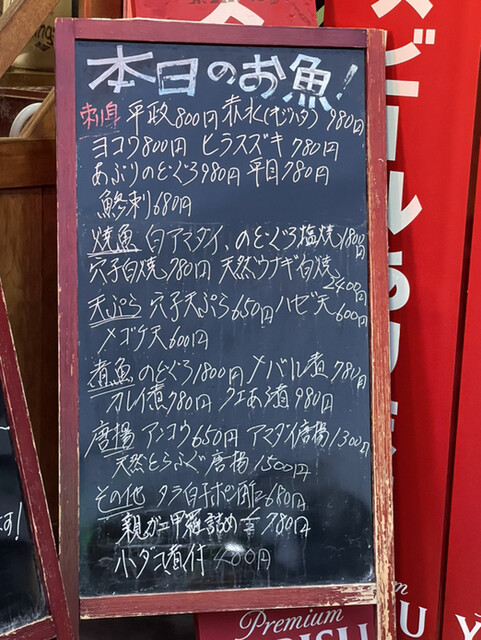 本日のお魚!
刺身 平政800円 赤水(オジハタ) 980円
ヨコワ800円 ヒラスズキ 780円
あぶりのどぐろ980円 平目780円
鯵刺680円
焼魚 白アマダイ、のどぐろ塩焼1800円
穴子白焼780円 天然ウナギ白焼
2400円
天ぷら 穴子天ぷら650円 ハゼ天600円
メゴチ天600円
煮魚 のどぐろ1800円 メバル煮780円
カレイ煮780円 クエあら煮980円
唐揚 アンコウ650円 アマダイ唐揚1300円
天然とらふぐ唐揚1500円
その他 タラ白子ポン酢680円
親ガニ甲羅詰め 780円
小ダコ煮付 400円
Premium